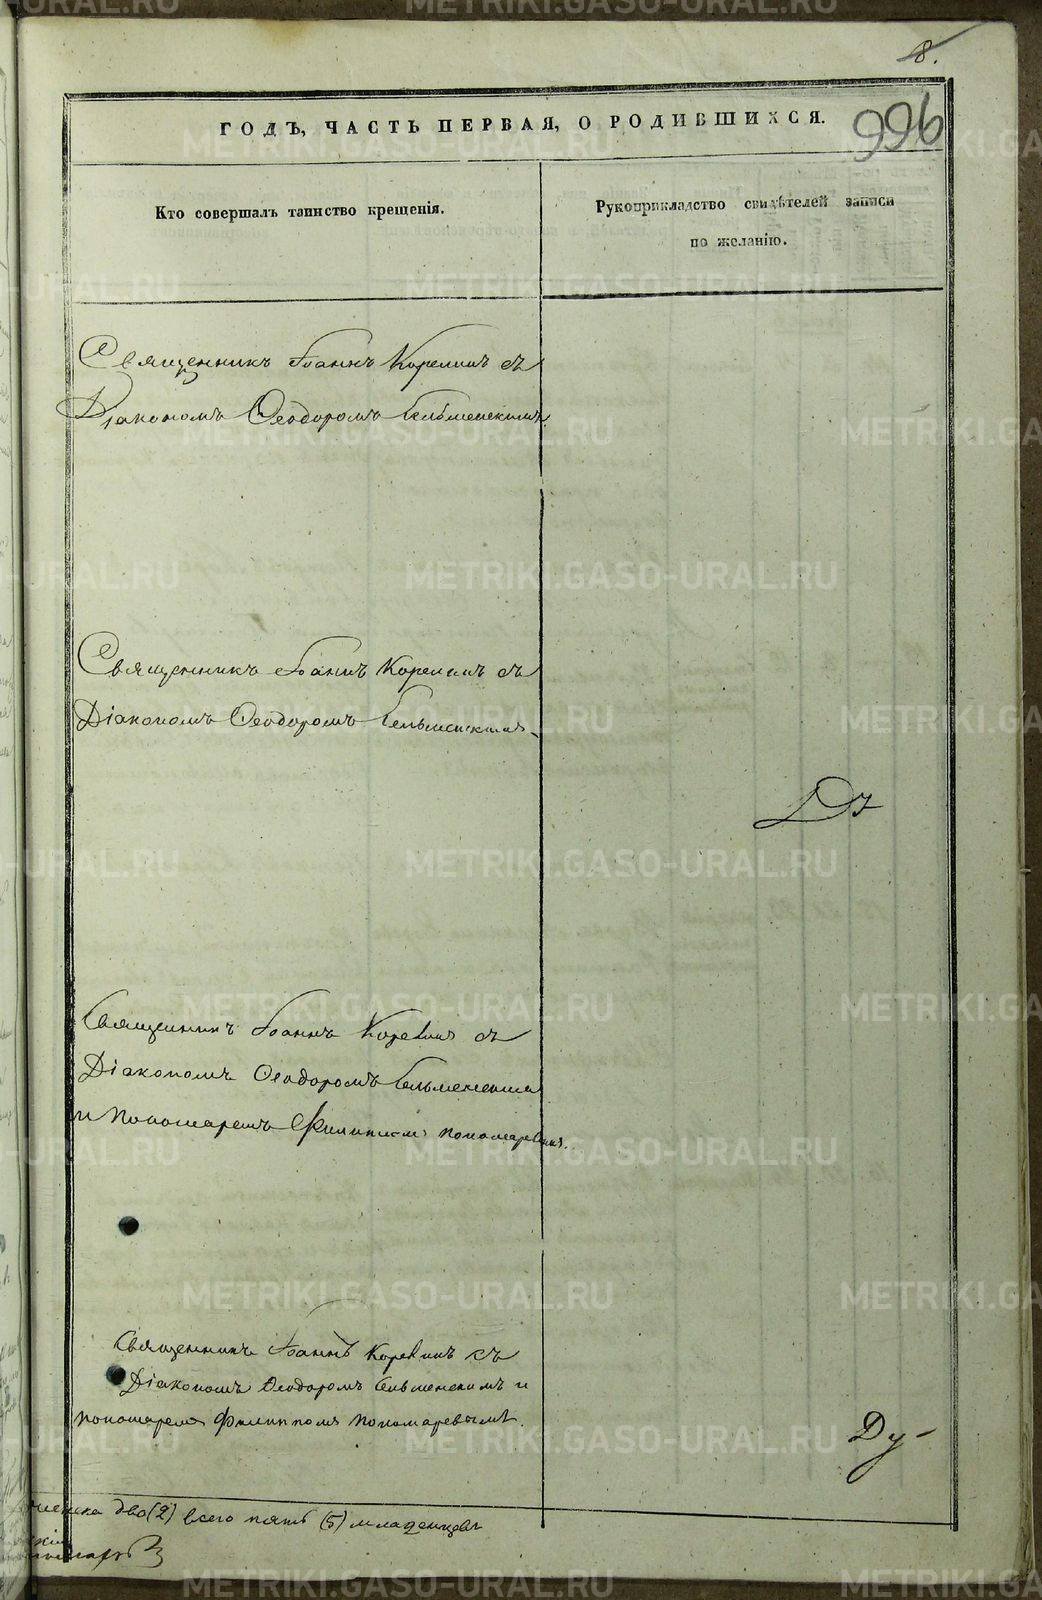 8.
996
ГОДЪ, ЧАСТЬ ПЕРВАЯ, О РОДИВШИХСЯ.
Кто совершалъ таинство крещенія.
Рукоприкладство свидѣтелей записи
по желанію.
Священникъ Іоаннъ Корелинъ съ
Діакономъ Ѳеодоромъ Сельменскимъ
Священникъ Іоаннъ Корелинъ съ
Діакономъ Ѳеодоромъ Сельменскимъ
Священникъ Іоаннъ Корелинъ съ
Діакономъ Ѳеодоромъ Сельменскимъ
и Пономаремъ Филиппомъ Пономаревымъ.
Священникъ Іоаннъ Корелинъ съ
Діакономъ Ѳеодоромъ Сельменскимъ и
пономаремъ Филиппомъ Пономаревымъ.
Ду-
женска два (2) всего пять (5) младенцевъ
METRIKI.GASO-URAL.RU